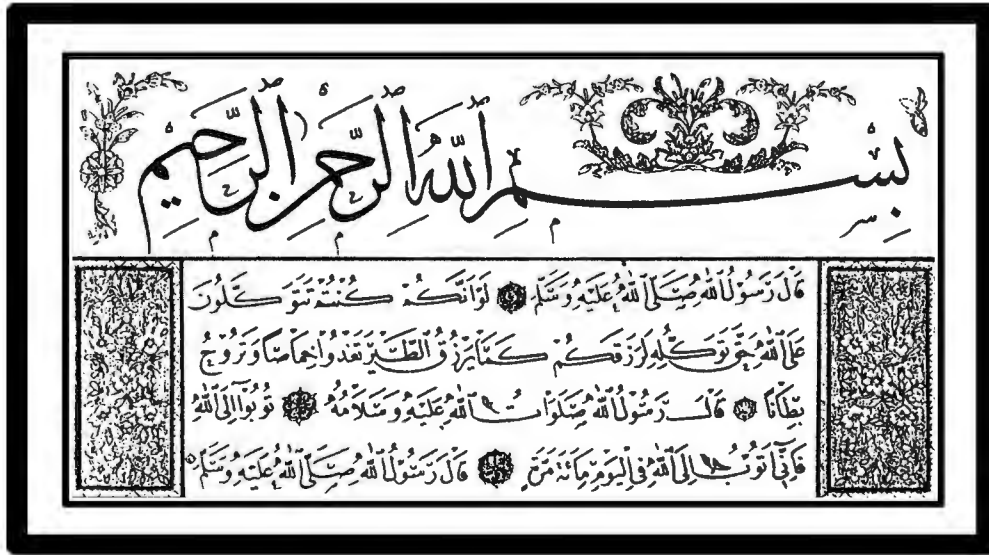 بِسْمِ اللهِ الرَّحْمٰنِ الرَّحِيمِ
قَالَ رَسُولُ اللهِ صَلَّى اللهُ عَلَيْهِ وَسَلَّمَ لَوْ أَنَّكُمْ كُنْتُمْ تَتَوَكَّلُونَ
عَلَى اللهِ حَقَّ تَوَكُّلِهِ لَرَزَقَكُمْ كَمَا يَرْزُقُ الطَّيْرَ تَغْدُوا خِمَاصًا وَتَرُوحُ
بِطَانًا قَالَ رَسُولُ اللهِ صَلَوَاتُ اللهِ عَلَيْهِ وَسَلَامُهُ تُوبُوا إِلَى اللهِ
فَإِنِّي أَتُوبُ إِلَى اللهِ فِي الْيَوْمِ مِائَةَ مَرَّةٍ قَالَ رَسُولُ اللهِ صَلَّى اللهُ عَلَيْهِ وَسَلَّمَ